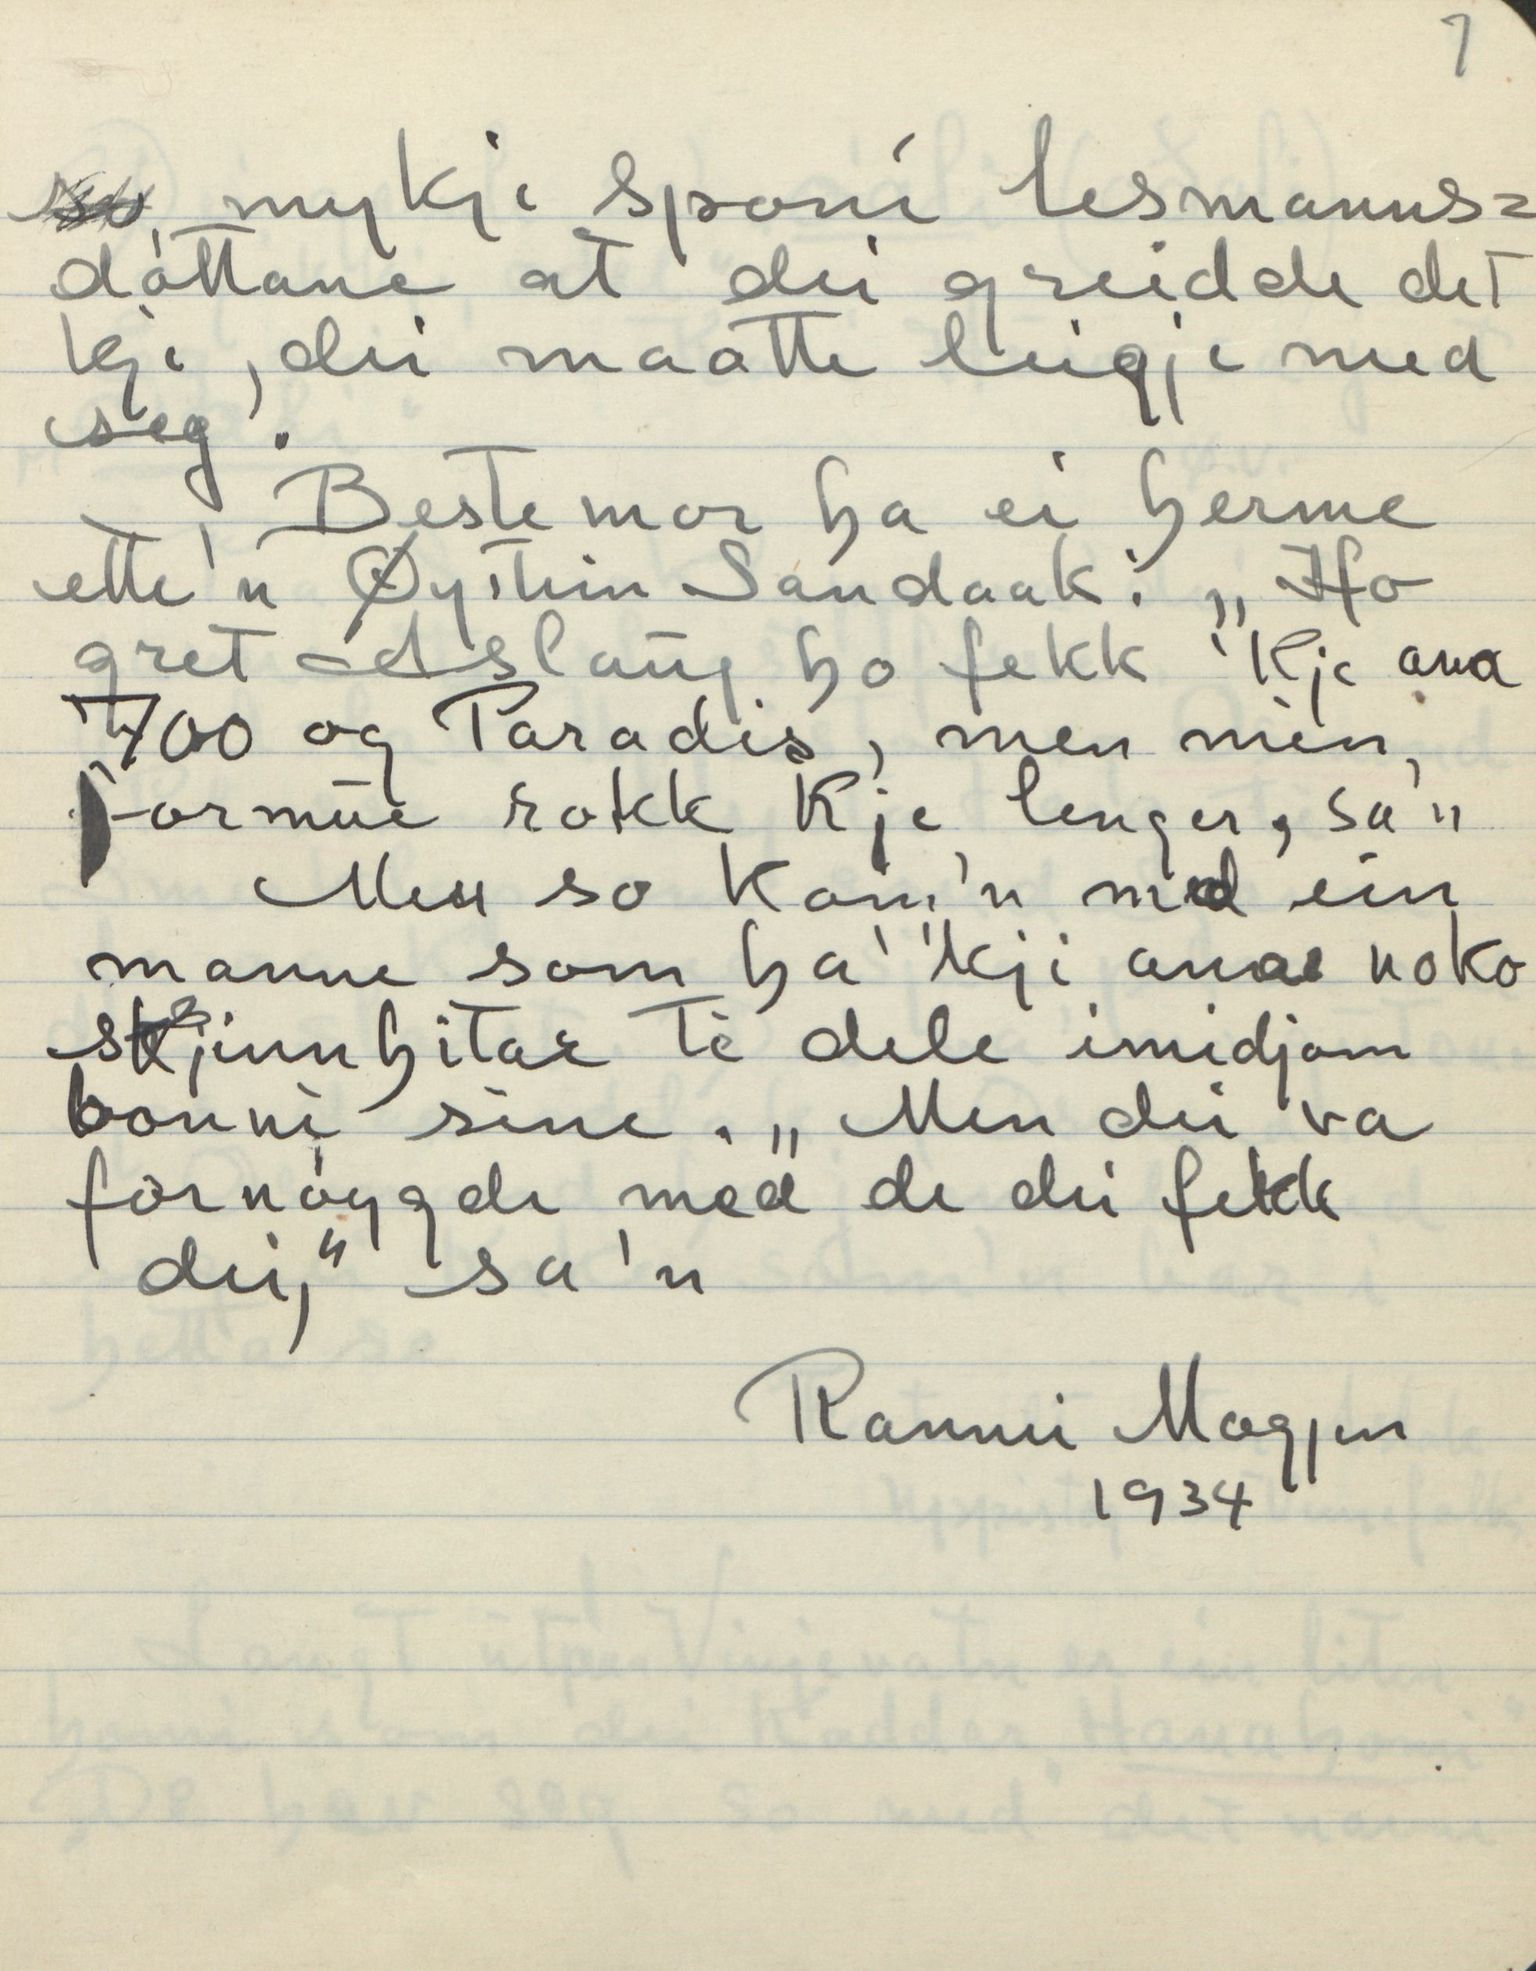 7
so mykje sponi lesmanns=
dóttane at dei greidde det
kji, dei maatte leigje med
seg.
Bestemor ha ei herme
ette'n Øystein Sandaak: „Ho
gret Aslaug ho fekk 'kje ana
700 og Paradis, men min,
formúe rokk kje lenger, sa'n
Men so kom'n med ein
manne som ha' 'kji anae noko
skjinnhitar te dele imidjom
bonni sine. „Men dei va
fornøygde med de dei fekk
dei," sa'n
Rannei Mogjen
1934